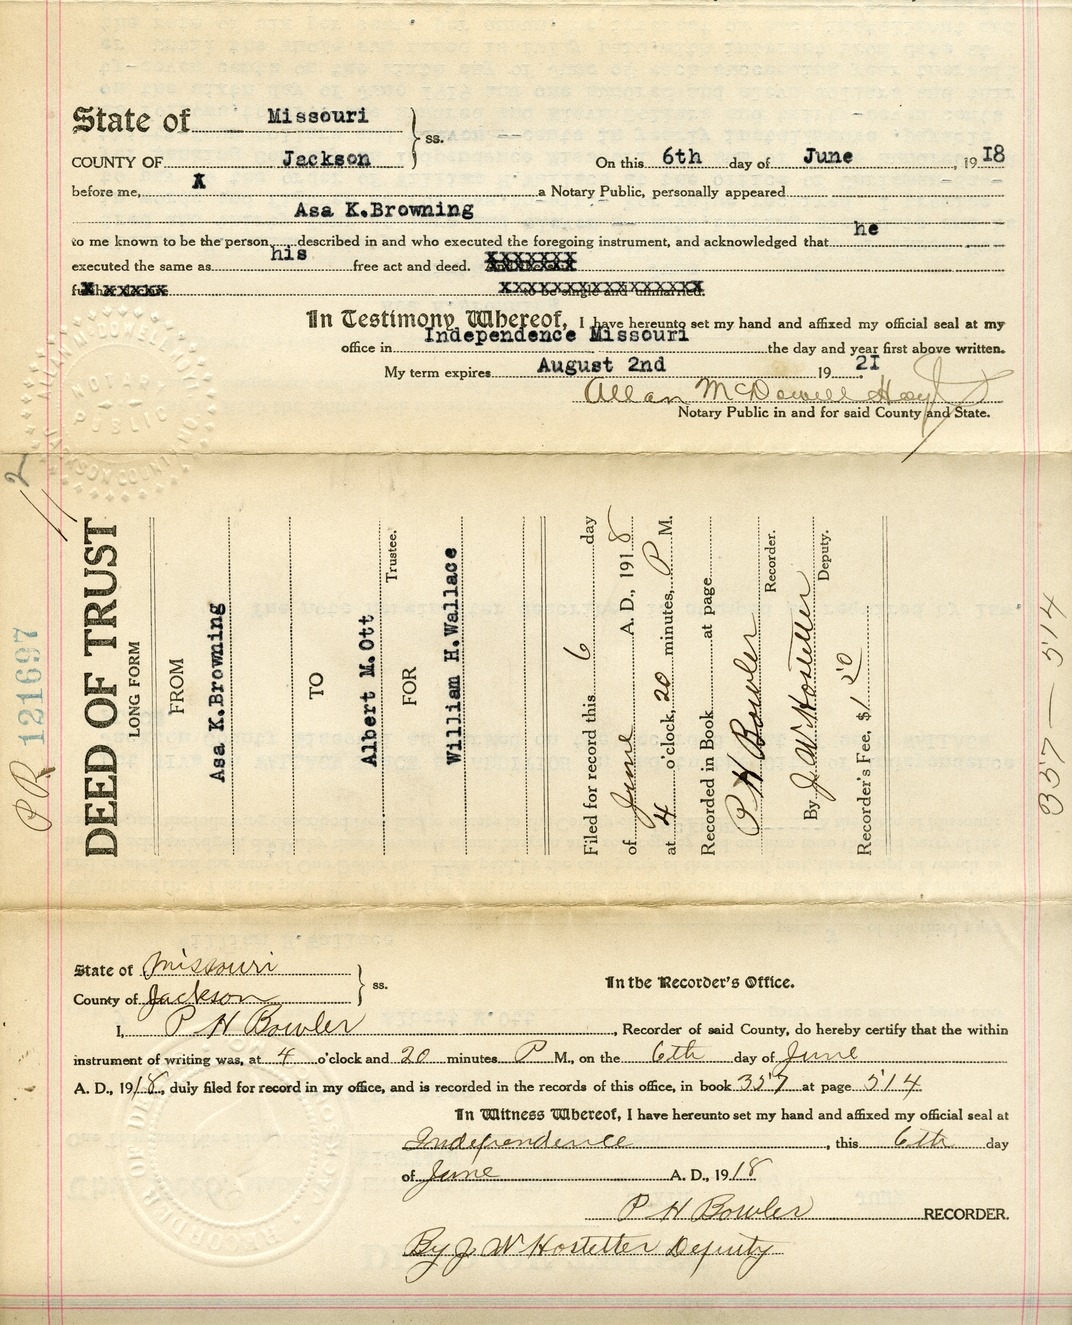 State of Missouri } ss.
COUNTY OF Jackson On this 6th day of June, 1918
before me, X a Notary Public, personally appeared
Asa K.Browning
to me known to be the person described in and who executed the foregoing instrument, and acknowledged that he
executed the same as his free act and deed.
to be single and unmarried.
In Testimony Whereof, I have hereunto set my hand and affixed my official seal at my
office in Independence Missouri the day and year first above written.
My term expires August 2nd 1921
Allan McDowell Hoyt
Notary Public in and for said County and State.
NOTARY
PUBLIC
JACKSON COUNTY
11 2
PR 121697
DEED OF TRUST
LONG FORM
FROM
Asa K.Browning
TO
Albert M.Ott
Trustee.
FOR
William H.Wallace
Filed for record this 6 day
of June A. D., 1918
at 4 o'clock, 20 minutes, P M.
Recorded in Book at page
P H Bowler
Recorder.
By J. W Hostetter
Deputy.
Recorder's Fee, $1 50
357 — 514
State of Missouri } ss.
County of Jackson
In the Recorder's Office.
I, P H Bowler, Recorder of said County, do hereby certify that the within
instrument of writing was, at 4 o'clock and 20 minutes P M., on the 6th day of June
A. D., 1918, duly filed for record in my office, and is recorded in the records of this office, in book 357 at page 514
In Witness Whereof, I have hereunto set my hand and affixed my official seal at
Independence, this 6th day
of June A. D., 1918
P H Bowler RECORDER.
By J W Hostetter Deputy
RECORDER OF DEEDS